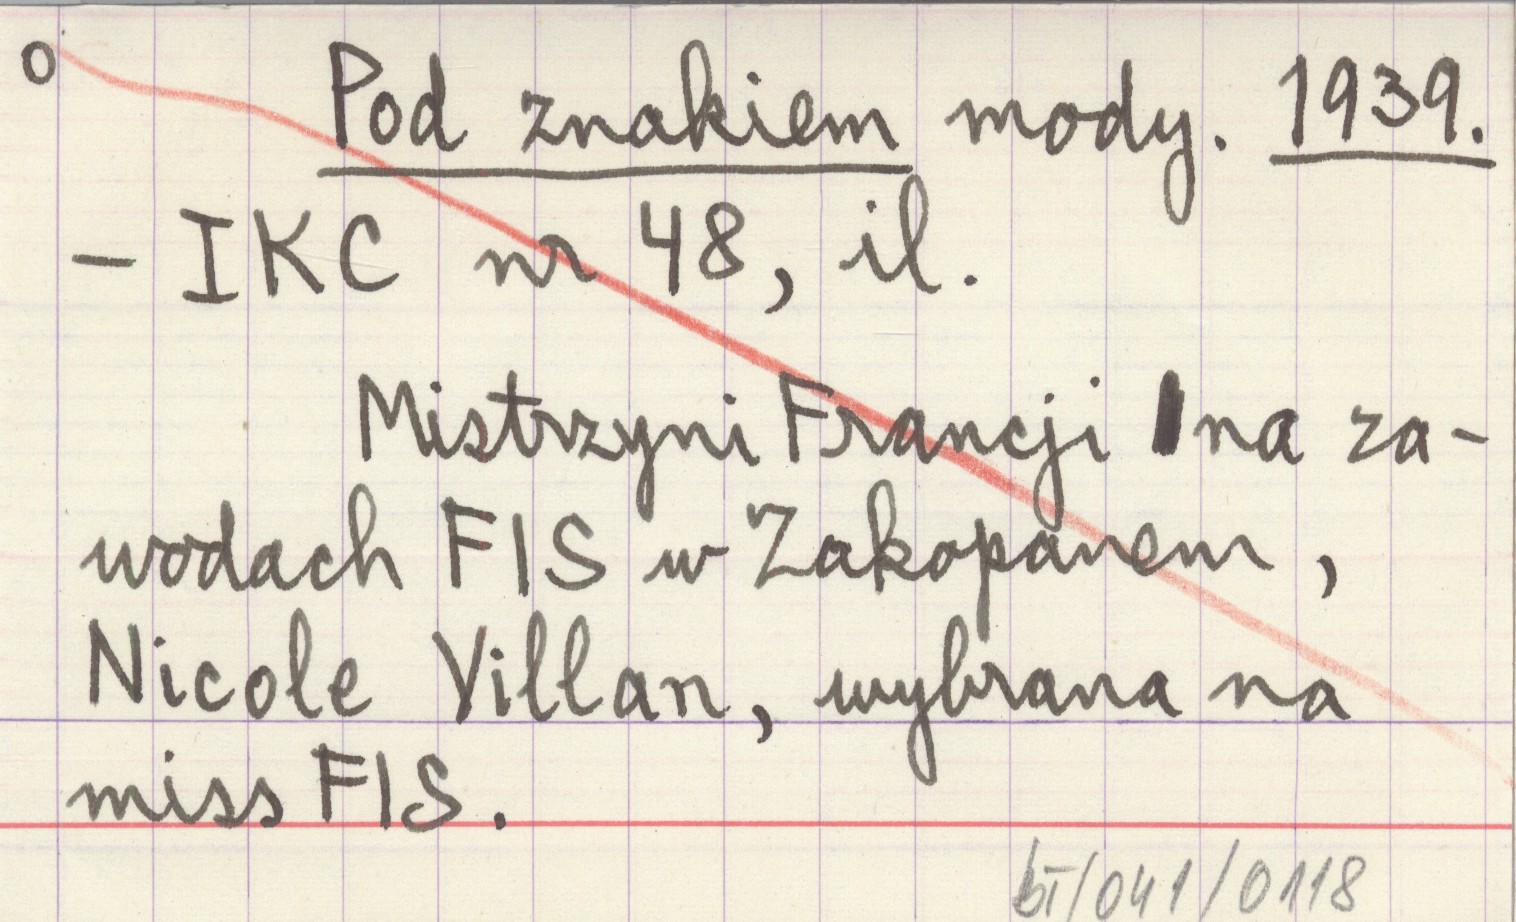 o Pod znakiem mody. 1939.
- IKC nr 48, il.
Mistrzyni Francji na za-
wodach FIS w Zakopanem,
Nicole Villan, wybrana na
miss FIS.
bī/041/0118